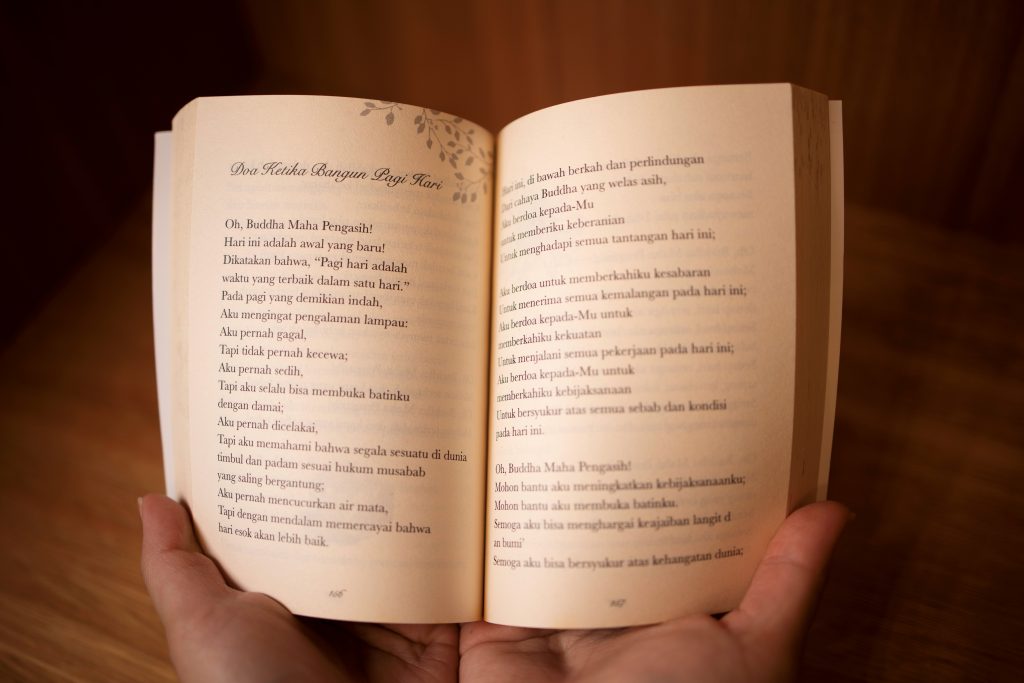 Doa Ketika Bangun Pagi Hari
Oh, Buddha Maha Pengasih!
Hari ini adalah awal yang baru!
Dikatakan bahwa, “Pagi hari adalah
waktu yang terbaik dalam satu hari.”
Pada pagi yang demikian indah,
Aku mengingat pengalaman lampau:
Aku pernah gagal,
Tapi tidak pernah kecewa;
Aku pernah sedih,
Tapi aku selalu bisa membuka batinku
dengan damai;
Aku pernah dicelakai,
Tapi aku memahami bahwa segala sesuatu di dunia
timbul dan padam sesuai hukum musabab
yang saling bergantung;
Aku pernah mencucurkan air mata,
Tapi dengan mendalam memercayai bahwa
hari esok akan lebih baik.
166
Hari ini, di bawah berkah dan perlindungan
Dari cahaya Buddha yang welas asih,
Aku berdoa kepada-Mu
untuk memberiku keberanian
Untuk menghadapi semua tantangan hari ini;
Aku berdoa untuk memberkahiku kesabaran
Untuk menerima semua kemalangan pada hari ini;
Aku berdoa kepada-Mu untuk
memberkahiku kekuatan
Untuk menjalani semua pekerjaan pada hari ini;
Aku berdoa kepada-Mu untuk
memberkahiku kebijaksanaan
Untuk bersyukur atas semua sebab dan kondisi
pada hari ini.
Oh, Buddha Maha Pengasih!
Mohon bantu aku meningkatkan kebijaksanaanku;
Mohon bantu aku membuka batinku.
Semoga aku bisa menghargai keajaiban langit d
an bumi'
Semoga aku bisa bersyukur atas kehangatan dunia;
167